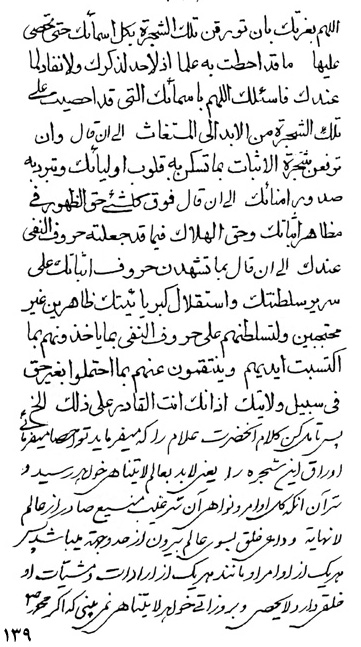 اللهم بعزتك بان تورقن تلك الشجرة بكل اسمآئك حتى تحصى
عليها ما قد احطت به علما اذ لاحد لذكرك ولانفاد لما
عندك فاسئلك اللهم باسمائك التى قد احصيت على
تلك الشجرة من الابد الى المستغاث الى ان قال وان
ترفعن شجرة الاثبات بما تسكن به قلوب اوليائك وتبرد به
صدور امنائك الى ان قال فوق كلشئ حق الظهور فى
مظاهر اثباتك وحق الهلاك فيما قد جعلته حروف النفى
عندك الى ان قال بما تشهدن حروف اثباتك على
سرير سلطنتك واستقلال كبريائيتك ظاهرين غير
محتجبين ولتسلطنهم على حروف النفى بما ياخذونهم بما
اكتسبت ايديهم وينتقمون عنهم بما احتملوا بغير حق
فى سبيل ولايتك اذ انك انت القادر على ذلك الخ
پس تامل كن كلام آنحضرت علام را كه ميفرمايد تو احصا ميفرمائى
اوراق اين شجره را يعنى لابد بعالم لايتناهى خواهد رسيد و
اوامر ونواهى آن صادر از عالم
لانهاية و خلق بسوى عالم بيرون از حد وجهة ميباشد پس
هريك از اوامر او مانند هريك از ارادات و مشيّات او
خلقى دارد لايحصى وبروزاتى خواهد لايتناهى نمى بينى كه اكر
۱۳۹